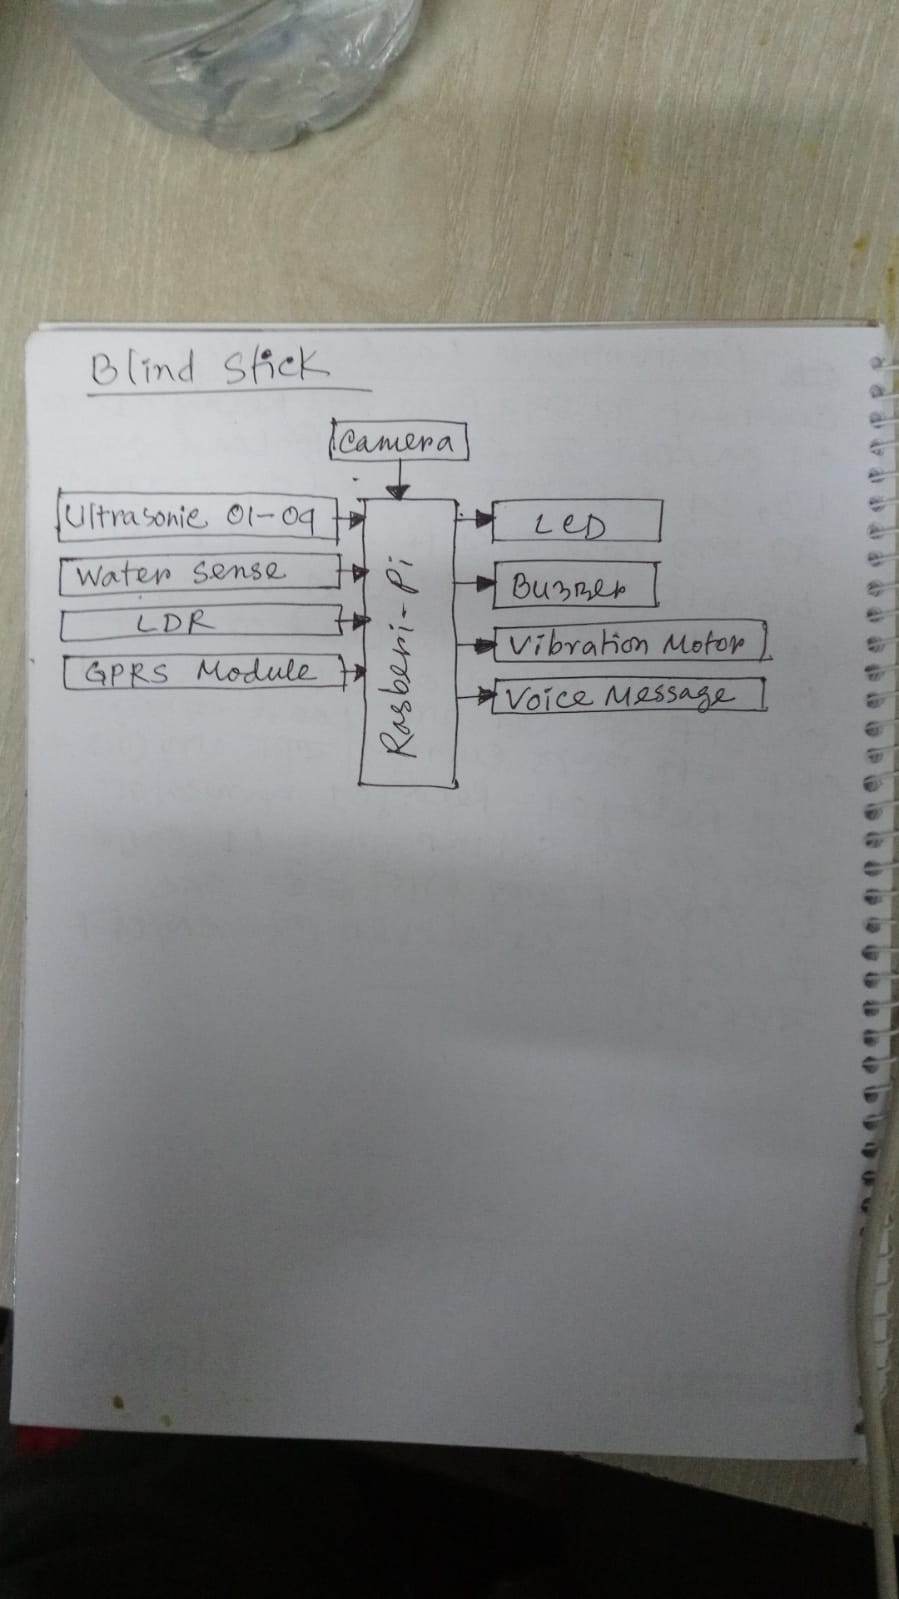 Blind Stick
Camera
Ultrasonic 01-09
Water Sense
LDR
GPRS Module
Rasberi-Pi
LED
Buzzer
Vibration Motor
Voice Message